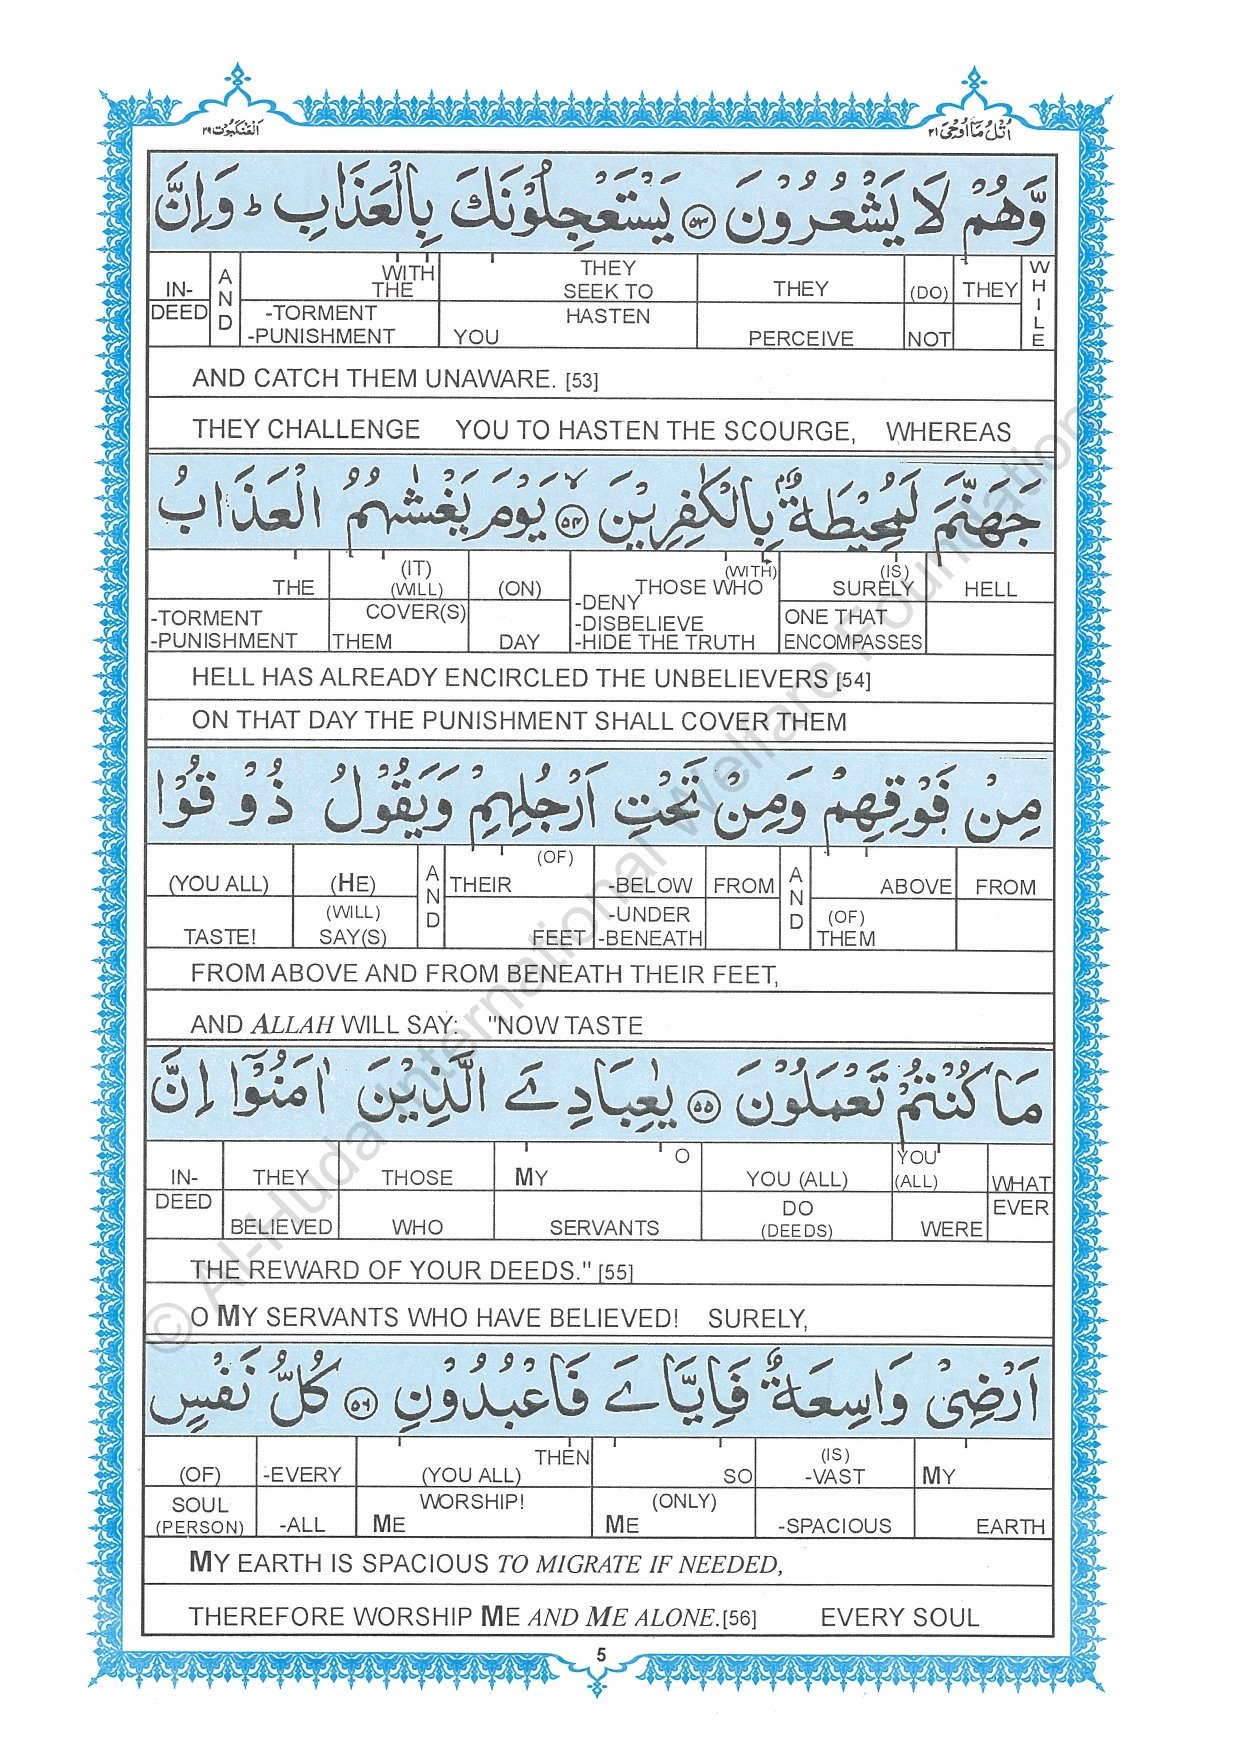 العنكبوت ٢٩
اُتْلُ مَا اُوْحِیَ ٢١
وَّهُمْ لَا يَشْعُرُوْنَ ۝٥٣ يَسْتَعْجِلُوْنَكَ بِالْعَذَابِ ؕ وَاِنَّ
IN- AND WITH THE THEY SEEK TO THEY (DO) THEY WHILE
DEED -TORMENT -PUNISHMENT YOU HASTEN PERCEIVE NOT
AND CATCH THEM UNAWARE. [53]
THEY CHALLENGE YOU TO HASTEN THE SCOURGE, WHEREAS
جَهَنَّمَ لَمُحِيْطَةٌۢ بِالْكٰفِرِيْنَ ۝٥٤ۙ يَوْمَ يَغْشٰىهُمُ الْعَذَابُ
THE (IT) (WILL) (ON) (WITH) THOSE WHO (IS) SURELY HELL
-TORMENT -PUNISHMENT COVER(S) THEM DAY -DENY -DISBELIEVE -HIDE THE TRUTH ONE THAT ENCOMPASSES
HELL HAS ALREADY ENCIRCLED THE UNBELIEVERS [54]
ON THAT DAY THE PUNISHMENT SHALL COVER THEM
مِنْ فَوْقِهِمْ وَمِنْ تَحْتِ اَرْجُلِهِمْ وَيَقُوْلُ ذُوْقُوْا
(YOU ALL) (HE) AND THEIR (OF) -BELOW FROM AND ABOVE FROM
TASTE! (WILL) SAY(S) FEET -UNDER -BENEATH (OF) THEM
FROM ABOVE AND FROM BENEATH THEIR FEET,
AND ALLAH WILL SAY: "NOW TASTE
مَا كُنْتُمْ تَعْمَلُوْنَ ۝٥٥ يٰعِبَادِيَ الَّذِيْنَ اٰمَنُوْۤا اِنَّ
IN- THEY THOSE MY O YOU (ALL) YOU (ALL) WHAT
DEED BELIEVED WHO SERVANTS DO (DEEDS) WERE EVER
THE REWARD OF YOUR DEEDS." [55]
O MY SERVANTS WHO HAVE BELIEVED! SURELY,
اَرْضِيْ وَاسِعَةٌ فَاِيَّايَ فَاعْبُدُوْنِ ۝٥٦ كُلُّ نَفْسٍ
(OF) -EVERY THEN (YOU ALL) SO (IS) -VAST MY
SOUL (PERSON) -ALL WORSHIP! ME (ONLY) ME -SPACIOUS EARTH
MY EARTH IS SPACIOUS TO MIGRATE IF NEEDED,
THEREFORE WORSHIP ME AND ME ALONE.[56] EVERY SOUL
5
© Al-Huda International Welfare Foundation